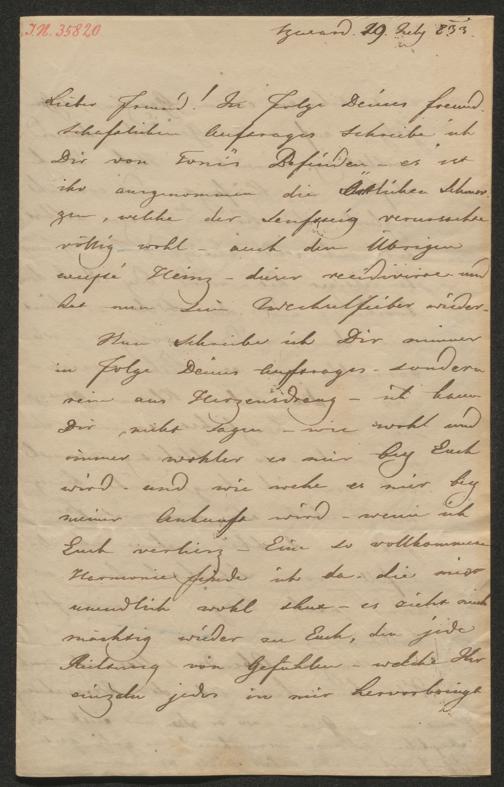 I.N. 35820
29. July 833
Lieber Freund! In Folge Deines freund-
schaftlichen Auftrages schreibe ich
Dir von Toni's Befinden – es ist
ihr ausgenommen die örtlichen Schmer-
zen, welche der Senfteig verursachte
völlig wohl – auch den Übrigen
Heinz – dieser recidivirte und
hat nun sein Wechselfieber wieder –
Nun schreibe ich Dir nimmer
in Folge Deines Auftrages – sondern
rein aus Herzensdrang – ich kann
Dir nicht sagen – wie wohl und
immer wohler es mir bey Euch
wird – und wie wehe es mir bey
meiner Ankunft wird – wenn ich
Euch – Eine so vollkommene
Harmonie finde ich da – die mir
unendlich wohl thut – es zieht mich
mächtig wieder zu Euch, da jede
von Gefühlen – welche Ihr
einzeln jedes in mir hervorbringt